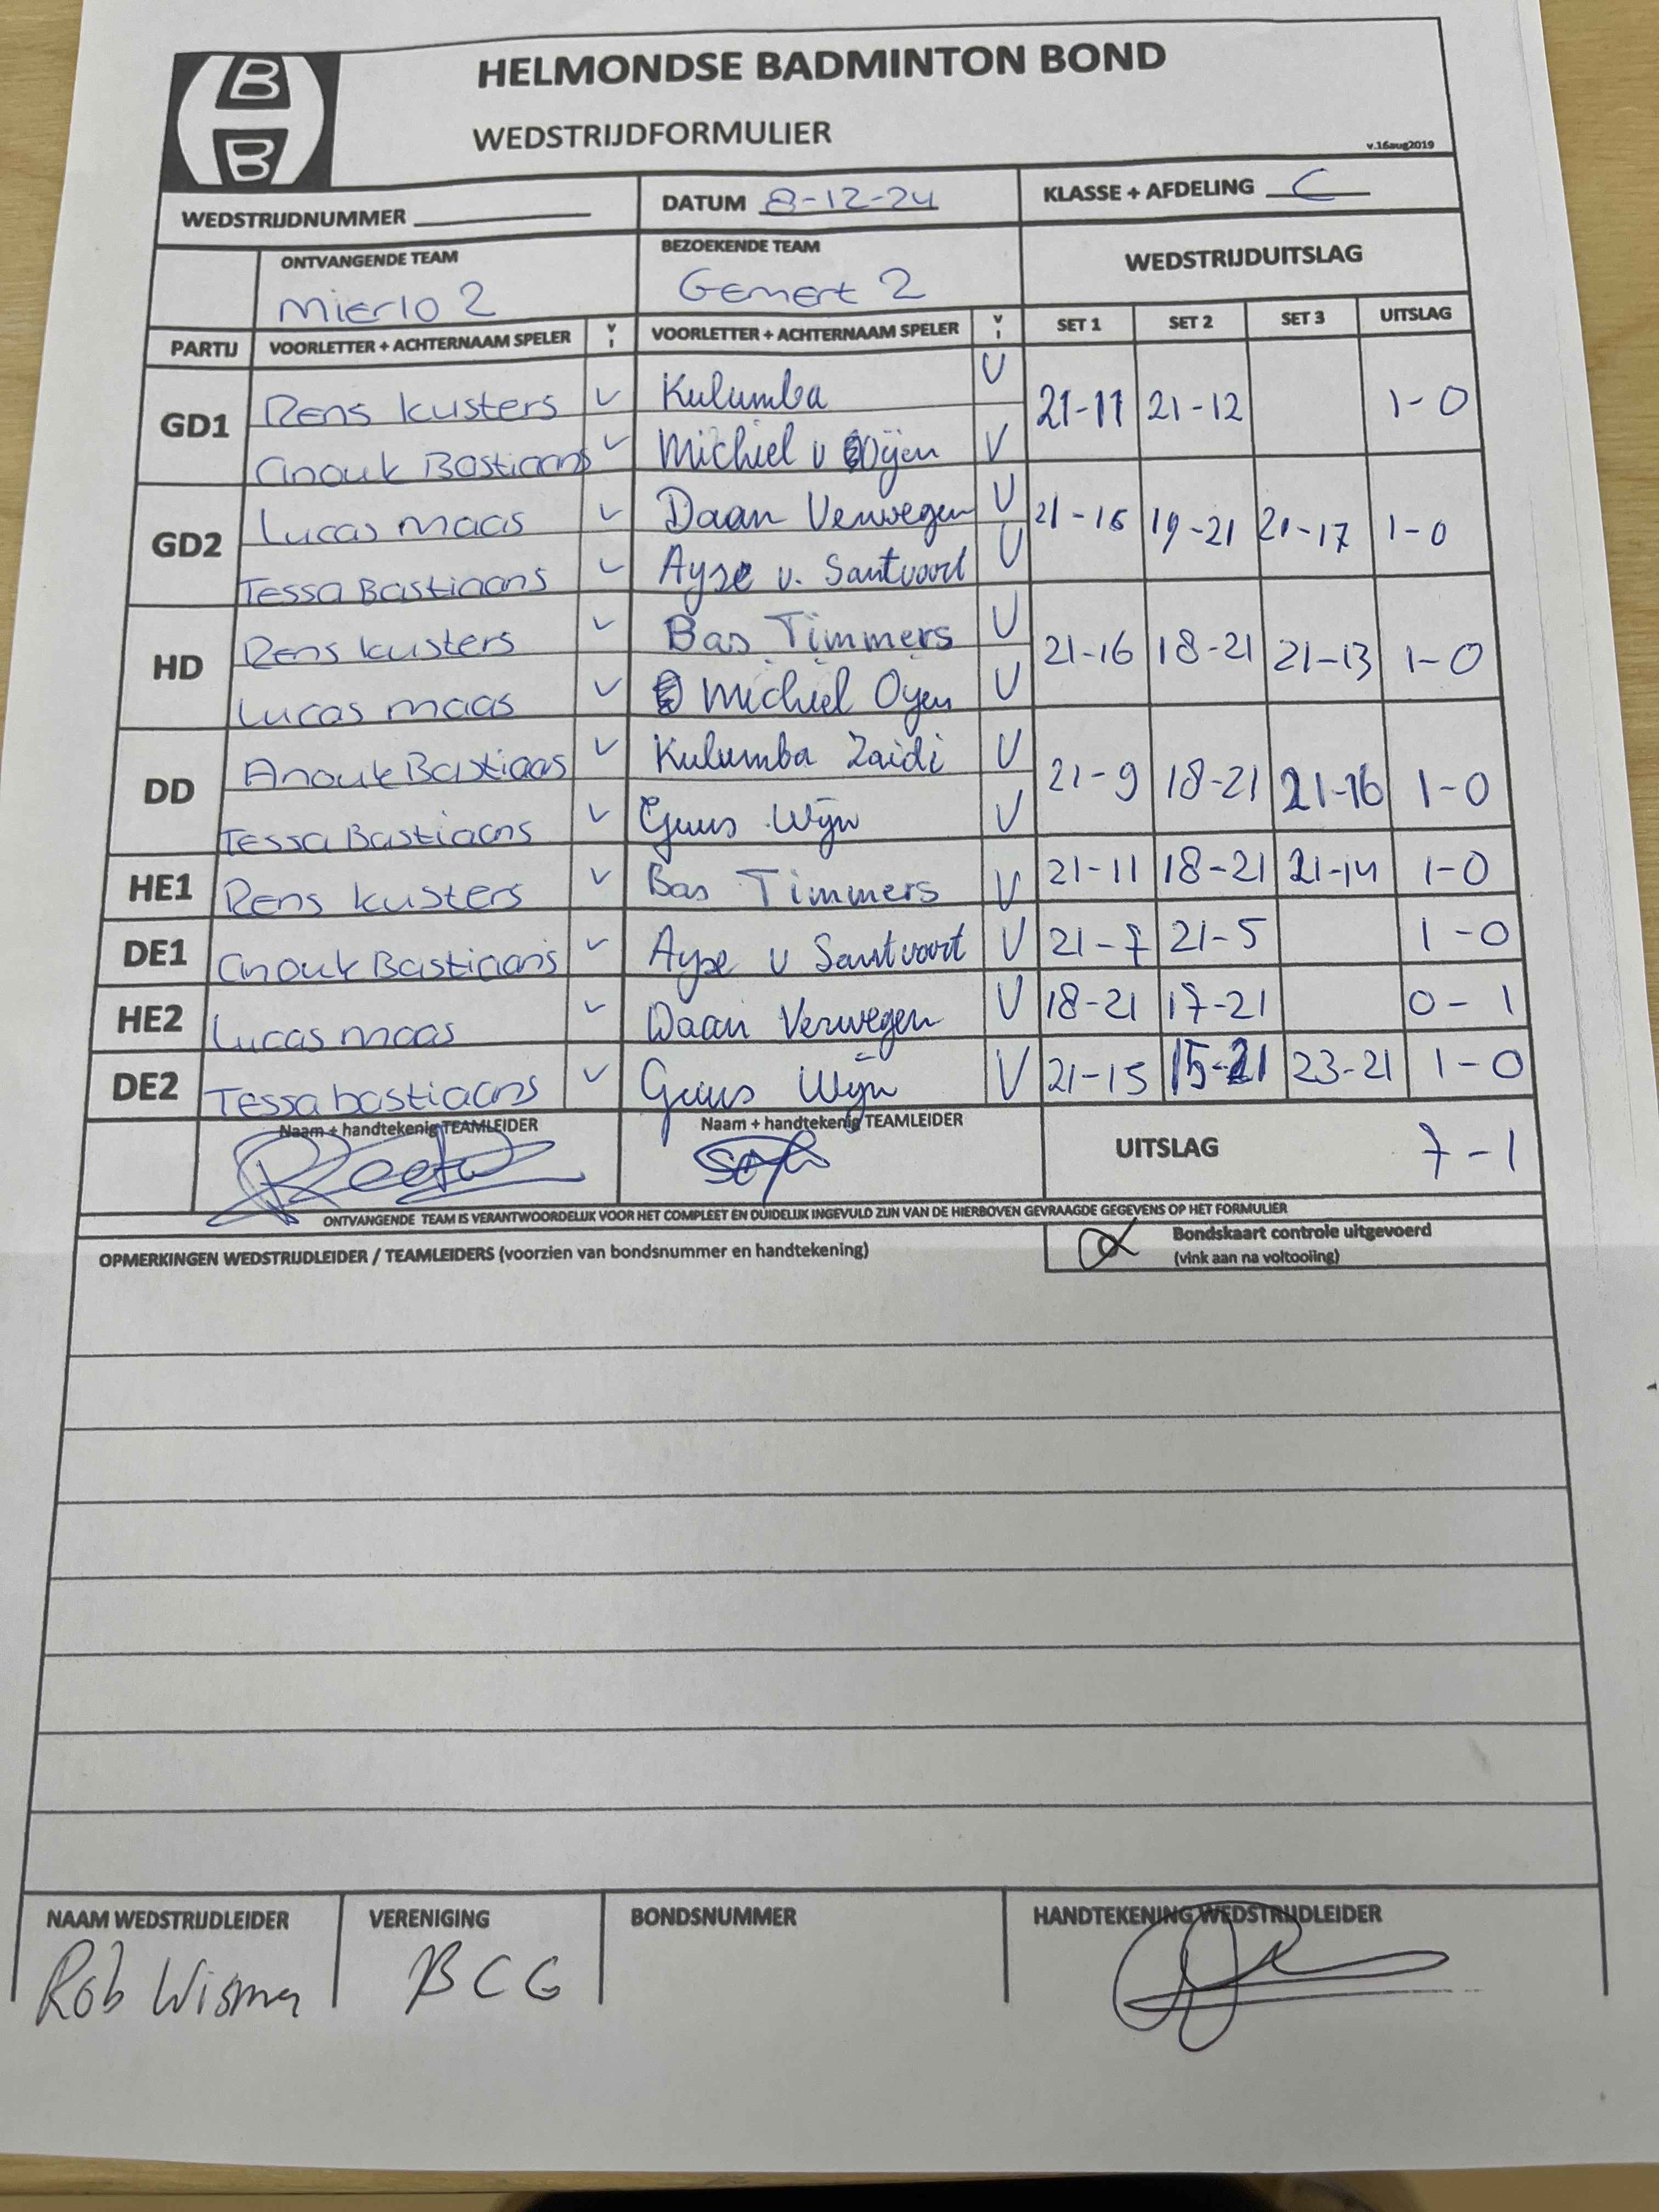 B
B
HELMONDSE BADMINTON BOND
WEDSTRIJDFORMULIER
v.16aug2019
WEDSTRIJDNUMMER DATUM 8-12-24 KLASSE + AFDELING C
ONTVANGENDE TEAM BEZOEKENDE TEAM WEDSTRIJDUITSLAG
Mierlo 2 Gemert 2
PARTIJ VOORLETTER + ACHTERNAAM SPELER V I VOORLETTER + ACHTERNAAM SPELER V I SET 1 SET 2 SET 3 UITSLAG
GD1 Rens Kusters V Kulumba V 21-11 21-12 1-0
Anouk Bastiaans V Michiel v Oijen V
GD2 Lucas Maas V Daan Verwegen V 21-16 19-21 21-17 1-0
Tessa Bastiaans V Ayse v. Santvoort V
HD Rens Kusters V Bas Timmers V 21-16 18-21 21-13 1-0
Lucas Maas V Michiel Oyen V
DD Anouk Bastiaas V Kulumba Zaidi V 21-9 18-21 21-16 1-0
Tessa Bastiaans V Guus Wijn V
HE1 Rens Kusters V Bas Timmers V 21-11 18-21 21-14 1-0
DE1 Anouk Bastiaans V Ayse v Santvoort V 21-7 21-5 1-0
HE2 Lucas Maas V Daan Verwegen V 18-21 17-21 0-1
DE2 Tessa bastiaans V Guus Wijn V 21-15 15-21 23-21 1-0
Naam + handtekenig TEAMLEIDER Naam + handtekenig TEAMLEIDER UITSLAG 7-1
ONTVANGENDE TEAM IS VERANTWOORDELIJK VOOR HET COMPLEET EN DUIDELIJK INGEVULD ZIJN VAN DE HIERBOVEN GEVRAAGDE GEGEVENS OP HET FORMULIER
OPMERKINGEN WEDSTRIJDLEIDER / TEAMLEIDERS (voorzien van bondsnummer en handtekening) Bondskaart controle uitgevoerd
(vink aan na voltooiing)
NAAM WEDSTRIJDLEIDER VERENIGING BONDSNUMMER HANDTEKENING WEDSTRIJDLEIDER
Rob Wisma BCG